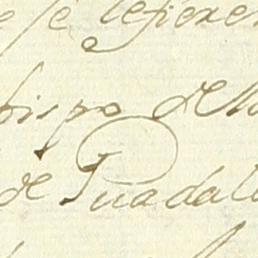 se refieren
bispo de
de Guadal